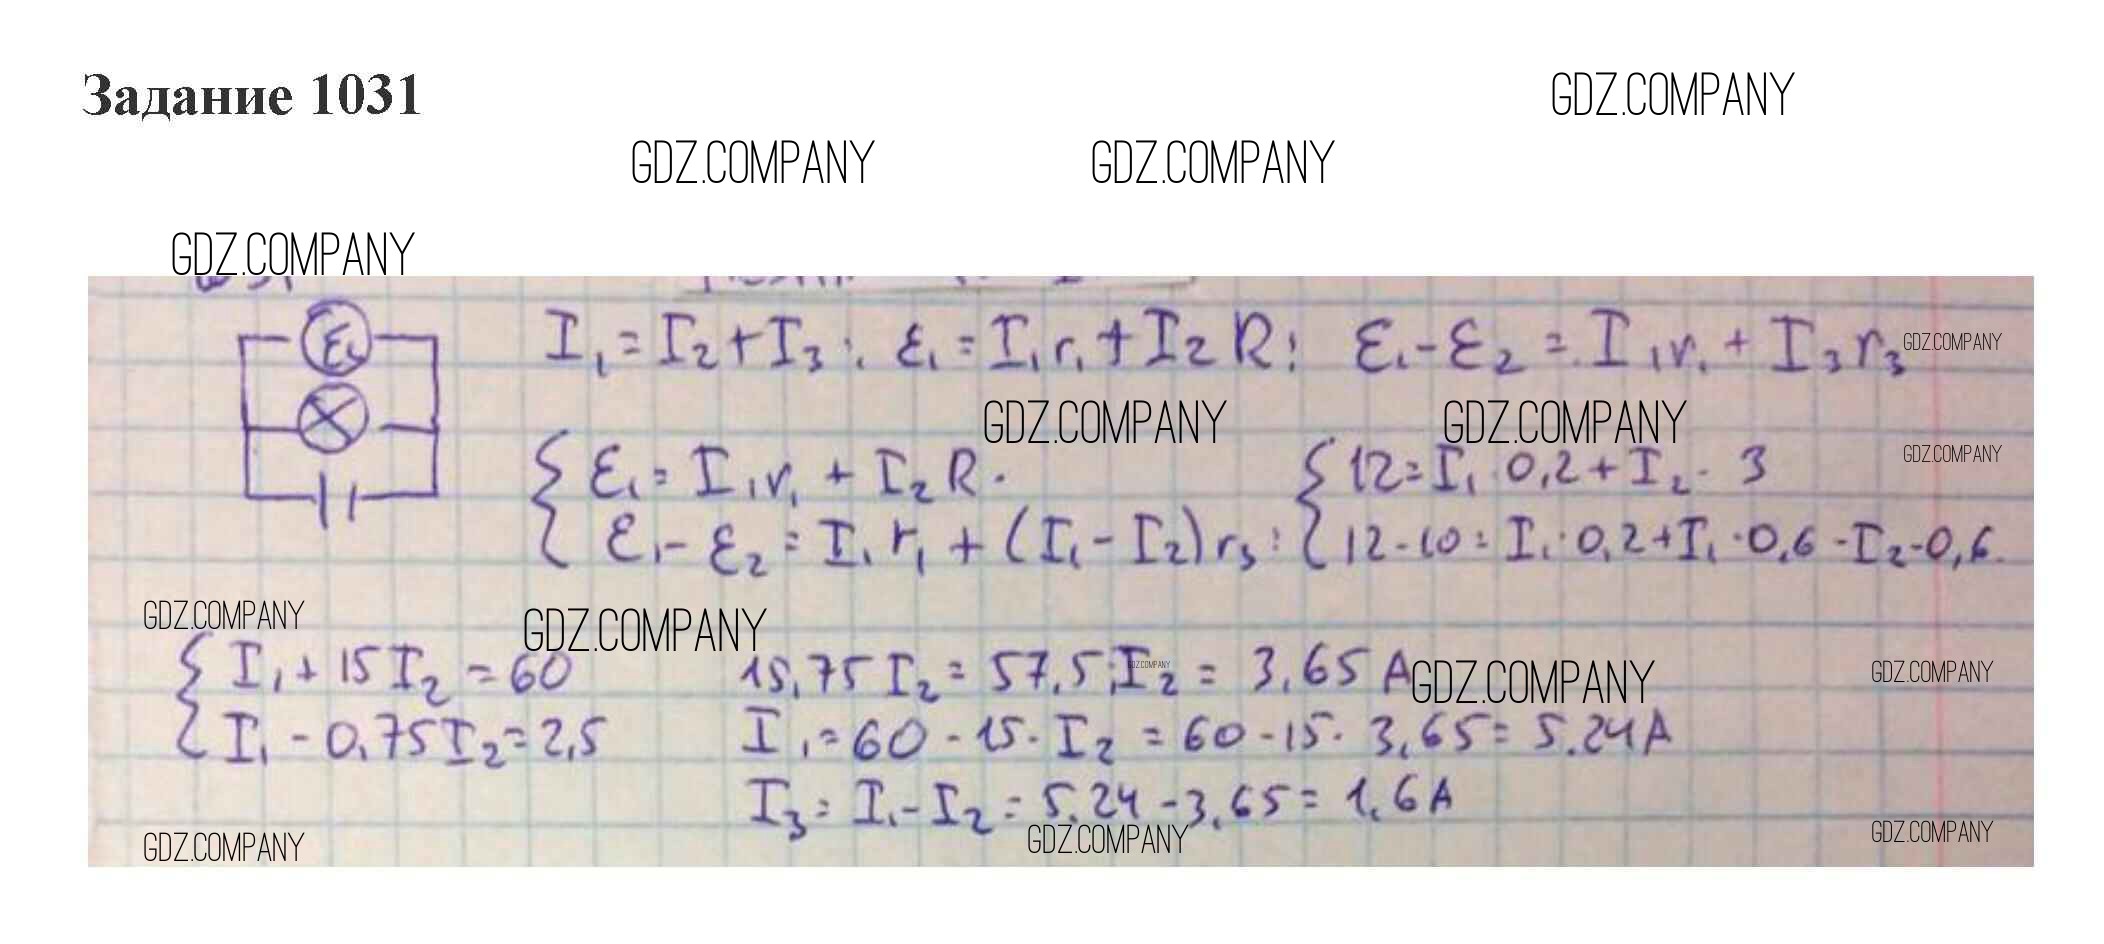 Задание 1031
GDZ.COMPANY
GDZ.COMPANY GDZ.COMPANY
GDZ.COMPANY
ε₁
I₁ = I₂ + I₃; ε₁ = I₁r₁ + I₂R; ε₁ - ε₂ = I₁r₁ + I₃r₃
GDZ.COMPANY
GDZ.COMPANY GDZ.COMPANY
GDZ.COMPANY
{ ε₁ = I₁r₁ + I₂R. { 12 = I₁ · 0,2 + I₂ · 3
ε₁ - ε₂ = I₁r₁ + (I₁ - I₂)r₃ : 12 - 10 = I₁ · 0,2 + I₁ · 0,6 - I₂ · 0,6.
GDZ.COMPANY GDZ.COMPANY
{ I₁ + 15I₂ = 60 15,75I₂ = 57,5; I₂ = 3,65 А
GDZ.COMPANY GDZ.COMPANY GDZ.COMPANY
I₁ - 0,75I₂ = 2,5 I₁ = 60 - 15 · I₂ = 60 - 15 · 3,65 = 5.24 А
I₃ = I₁ - I₂ = 5.24 - 3,65 = 1,6 А
GDZ.COMPANY GDZ.COMPANY GDZ.COMPANY